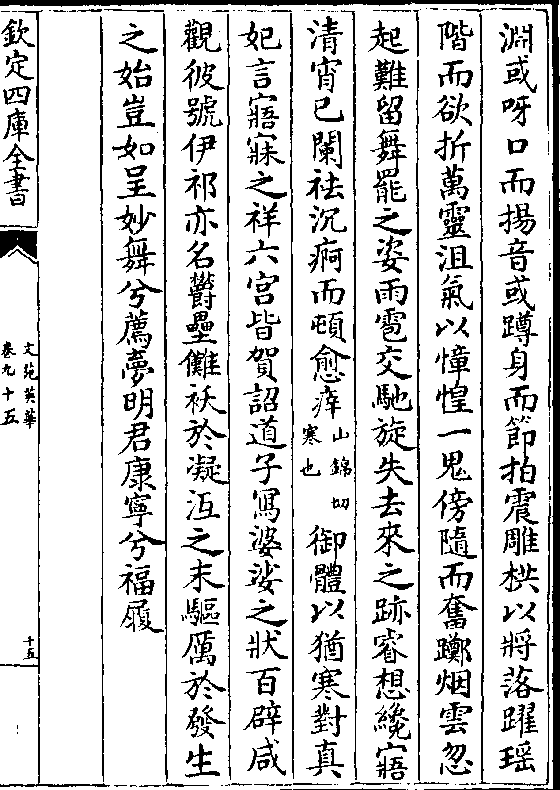 淵或呀口而揚音或蹲身而節拍震雕栱以將落躍瑶
階而欲折萬靈沮氣以憧惶一鬼傍隨而奮躑烟雲忽
起難留舞罷之姿雨雹交馳旋失去來之跡睿想纔寤
清宵已闌祛沉痾而頓愈瘁山錦切寒也御體以猶寒對真
妃言寤寐之祥六宫皆賀詔道子寫婆娑之狀百辟咸
觀彼號伊祁亦名欝壘儺袄於凝沍之末驅厲於發生
之始豈如呈妙舞兮薦夢明君康寧兮福履
欽定四庫全書
文苑英華
卷九十五
十五